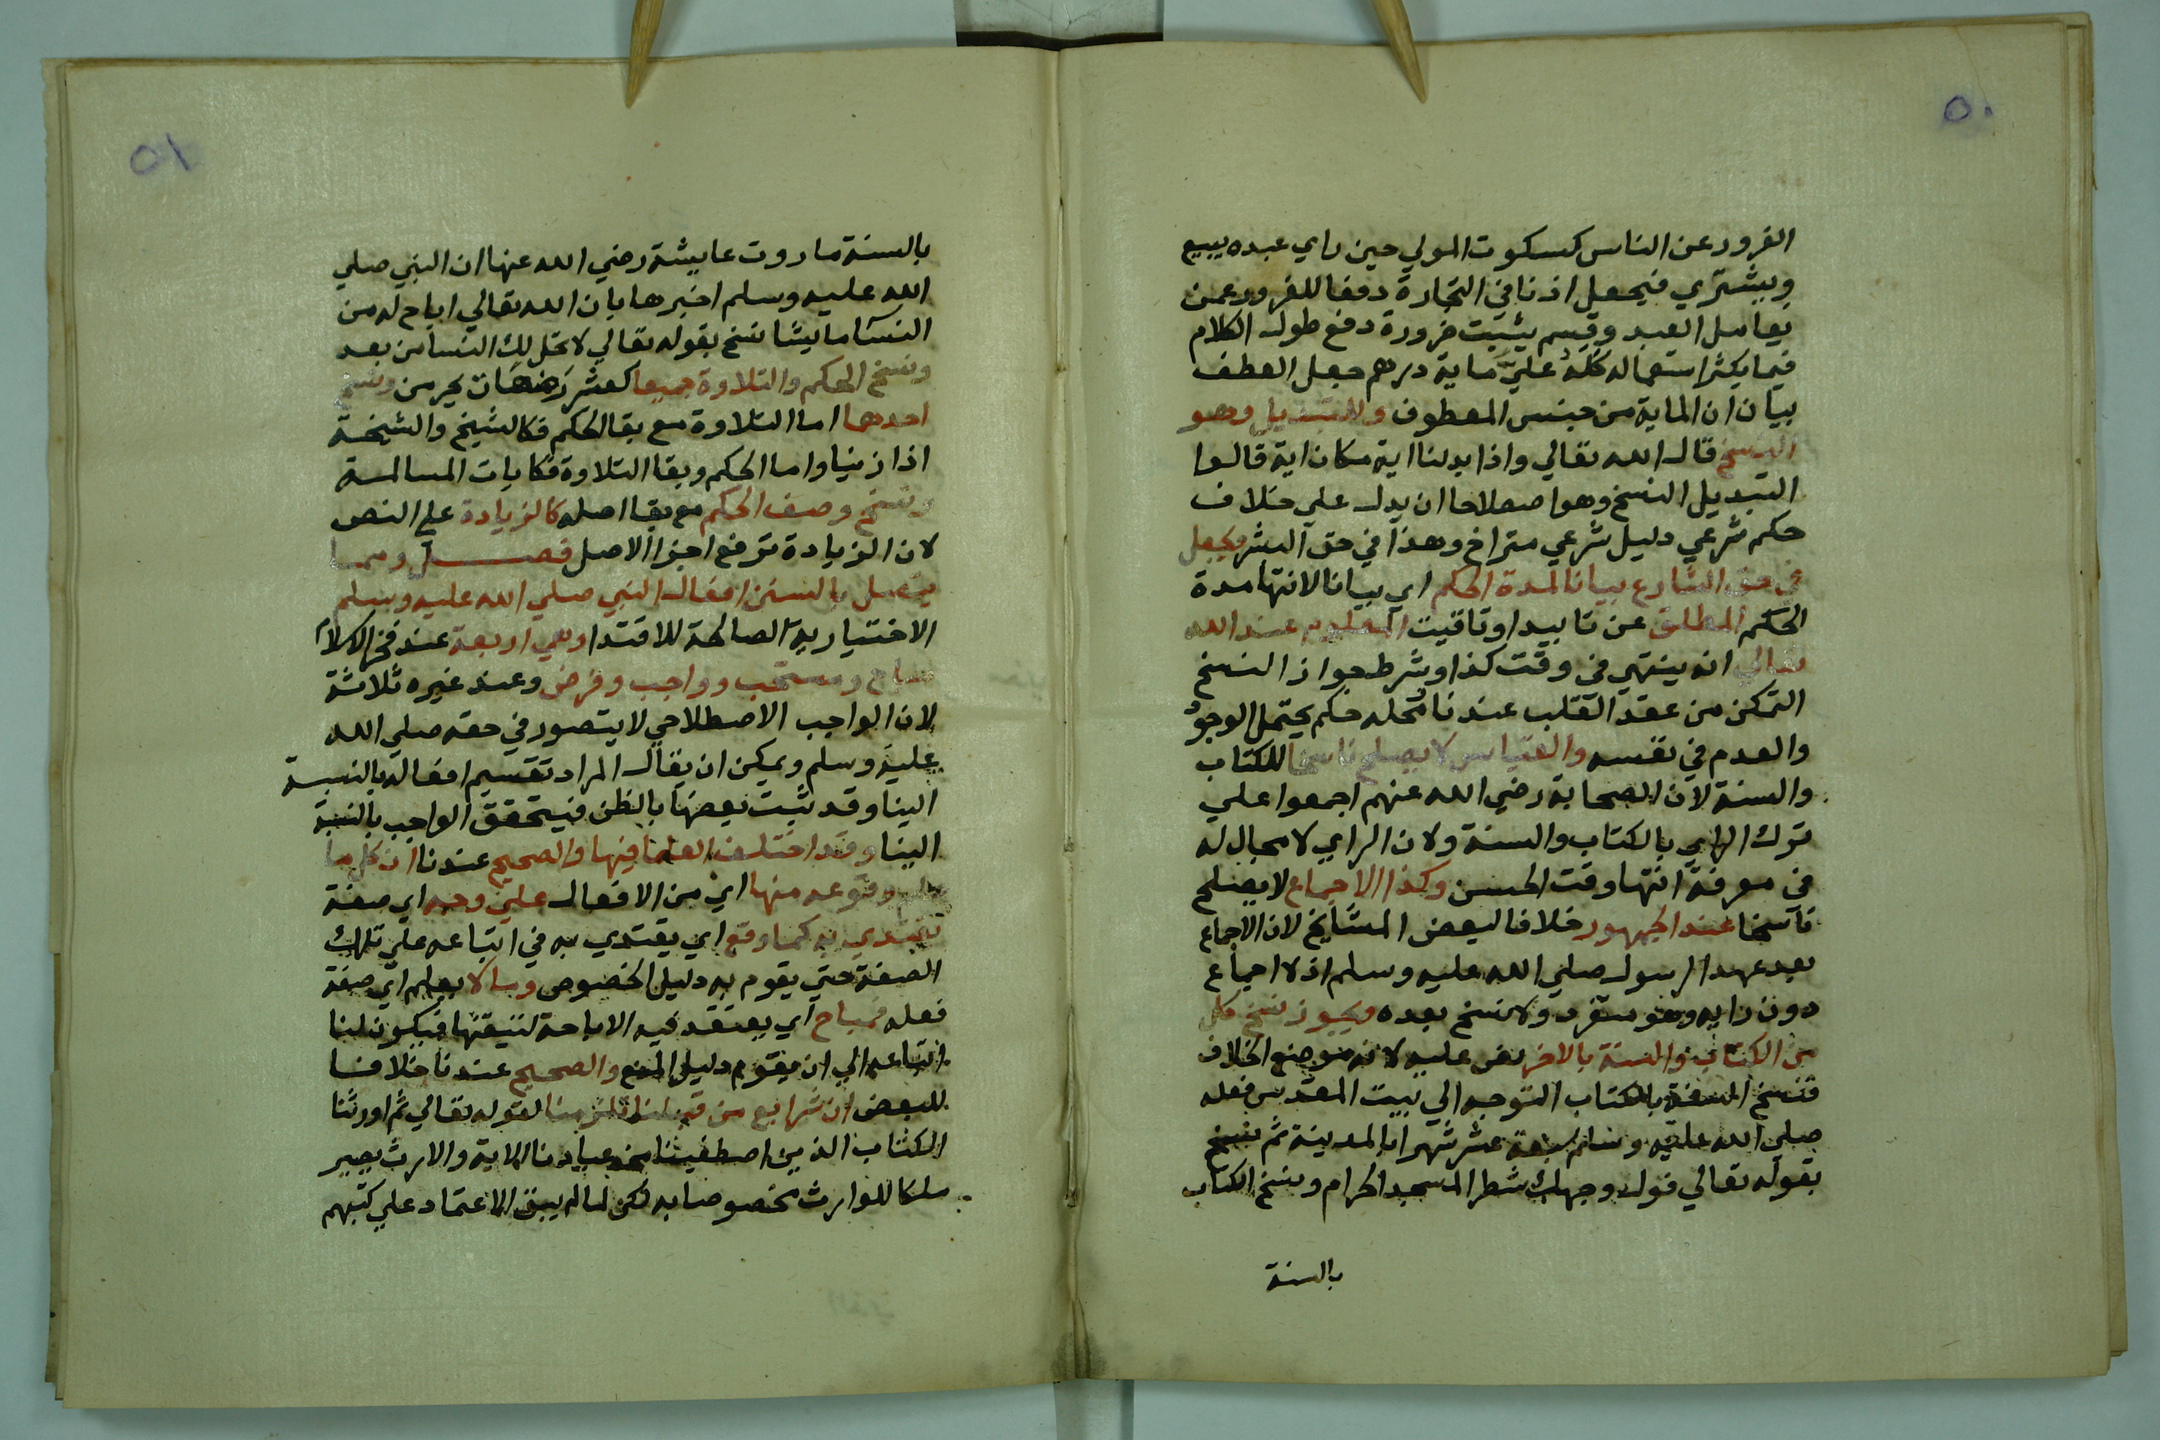 ٥٠
الغرور عن الناس كسكوت المولي حين راي عبده يبيع
ويشتري فيجعل اذنا في التجارة دفعا للغرور عمن
يعامل العبد وقسم يثبت ضرورة دفع طول الكلام
فيما يكثر استعماله كله علي ماية درهم جعل العطف
بيان ان الماية من جنس المعطوف والتبديل وهو
النسخ قال الله تعالي واذا بدلنا اية مكان اية قالوا
التبديل النسخ وهو اصطلاحا ان يدل علي خلاف
حكم شرعي دليل شرعي متراخ وهذا في حق البشر ويجعل
في حق الشارع بيانا لمدة الحكم اي بيانا لانتها مدة
الحكم المطلق عن تابيد او تاقيت المعلوم عند الله
تعالي انه ينتهي في وقت كذا وشرط جواز النسخ
التمكن من عقد القلب عندنا ومحله حكم يحتمل الوجود
والعدم في نفسه والقياس لا يصلح ناسخا للكتاب
والسنة لان الصحابة رضي الله عنهم اجمعوا علي
ترك الراي بالكتاب والسنة ولان الراي لا مجال له
في معرفة انتها وقت الحسن وكذا الاجماع لا يصلح
ناسخا عند الجمهور خلافا لبعض المشايخ لان الاجماع
بعد عهد الرسول صلي الله عليه وسلم اذ لا اجماع
دون رايه وهو منفرد ولا نسخ بعده ويجوز نسخ كل
من الكتاب والسنة بالاخر نص عليه لانه موضع الخلاف
فنسخ السنة بالكتاب التوجه الي بيت المقدس فعله
صلي الله عليه وسلم ستة عشر شهرا بالمدينة ثم نسخ
بقوله تعالي فول وجهك شطر المسجد الحرام ونسخ الكتاب
بالسنة
٥١
بالسنة ما روت عايشة رضي الله عنها ان النبي صلي
الله عليه وسلم اخبرها بان الله تعالي اباح له من
النسا ما يشا نسخ بقوله تعالي لا تحل لك النسا من بعد
ونسخ الحكم والتلاوة جميعا كعشر رضعات يحرمن ونسخ
احدهما اما التلاوة مع بقا الحكم فكالشيخ والشيخة
اذا زنيا واما الحكم وبقا التلاوة فكايات المسالمة
ونسخ وصف الحكم مع بقا اصله كالزيادة علي النص
لان الزيادة ترفع اجزا الاصل فصل ومما
يتصل بالسنن افعال النبي صلي الله عليه وسلم
الاختيارية الصالحة للاقتدا وهي اربعة عند فخر الاسلام
مباح ومستحب وواجب وفرض وعند غيره ثلاثة
لان الواجب الاصطلاحي لا يتصور في حقه صلي الله
عليه وسلم ويمكن ان يقال المراد تقسيم افعاله بالنسبة
الينا وقد ثبت بعضها بالظن فيتحقق الواجب بالنسبة
الينا وقد اختلف العلما فيها والصحيح عندنا ان كل ما
علم وقوعه منها اي من الافعال علي وجه اي صفة
نقتدي به كما وقع اي يقتدي به في اتباعه علي تلك
الصفة حتي يقوم به دليل الخصوص وما لا يعلم اي صفة
فعله فمباح اي يعتقد فيه الاباحة لتيقنها فيكون لنا
اتباعه الي ان يقوم دليل المنع والصحيح عندنا خلافا
للبعض ان شرايع من قبلنا تلزمنا لقوله تعالي ثم اورثنا
الكتاب الذين اصطفينا من عبادنا الاية والارث يصير
ملكا للوارث مخصوصا به لكن لما لم يبق الاعتماد علي كتبهم